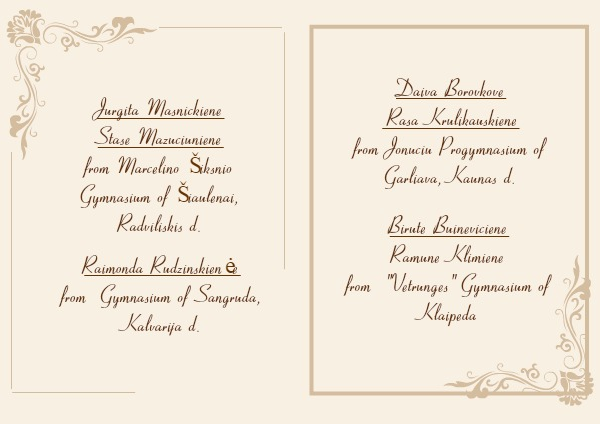 Jurgita Masnickiene
Stase Mazuciuniene
from Marcelino Šiksnio
Gymnasium of Šiaulenai,
Radviliskis d.
Raimonda Rudzinskienė
from Gymnasium of Sangruda,
Kalvarija d.
Daiva Borovkove
Rasa Krulikauskiene
from Jonuciu Progymnasium of
Garliava, Kaunas d.
Birute Buineviciene
Ramune Klimiene
from "Vetrunges" Gymnasium of
Klaipeda